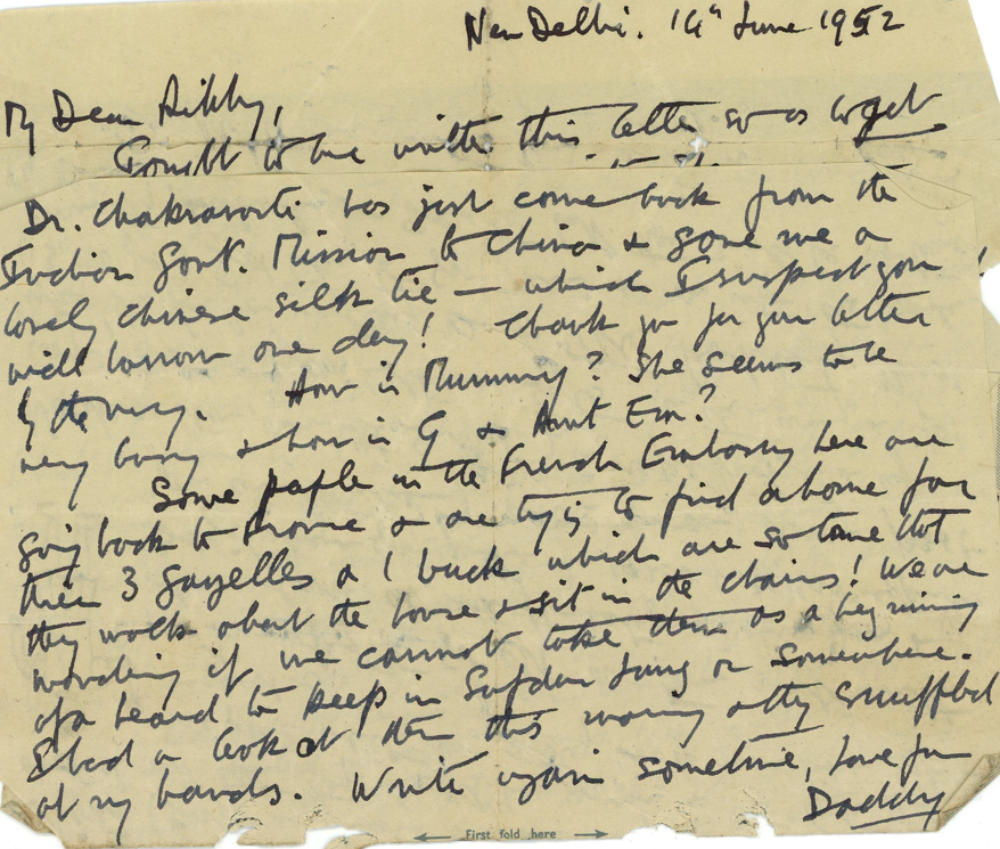 New Delhi. 14th June 1952
My Dear
I ought to have written this letter so as to get
Dr. Chakravarti has just come back from the
Indian Govt. Mission to China & gave me a
lovely chinese silk tie — which I suspect you
will borrow one day! Thank you for your letter
by the way. How is Mummy? She seems to be
very busy & how is G & Aunt Em?
Some people in the French Embassy here are
going back to France & are trying to find a home for
their 3 gazelles & 1 buck which are so tame that
they walk about the house & sit in the chairs! We are
wondering if we cannot take them as a beginning
of a heard to keep in Safdar Jang or somewhere.
I had a look at them this morning & they snuffled
at my hands. Write again sometime, love from
Daddy
First fold here